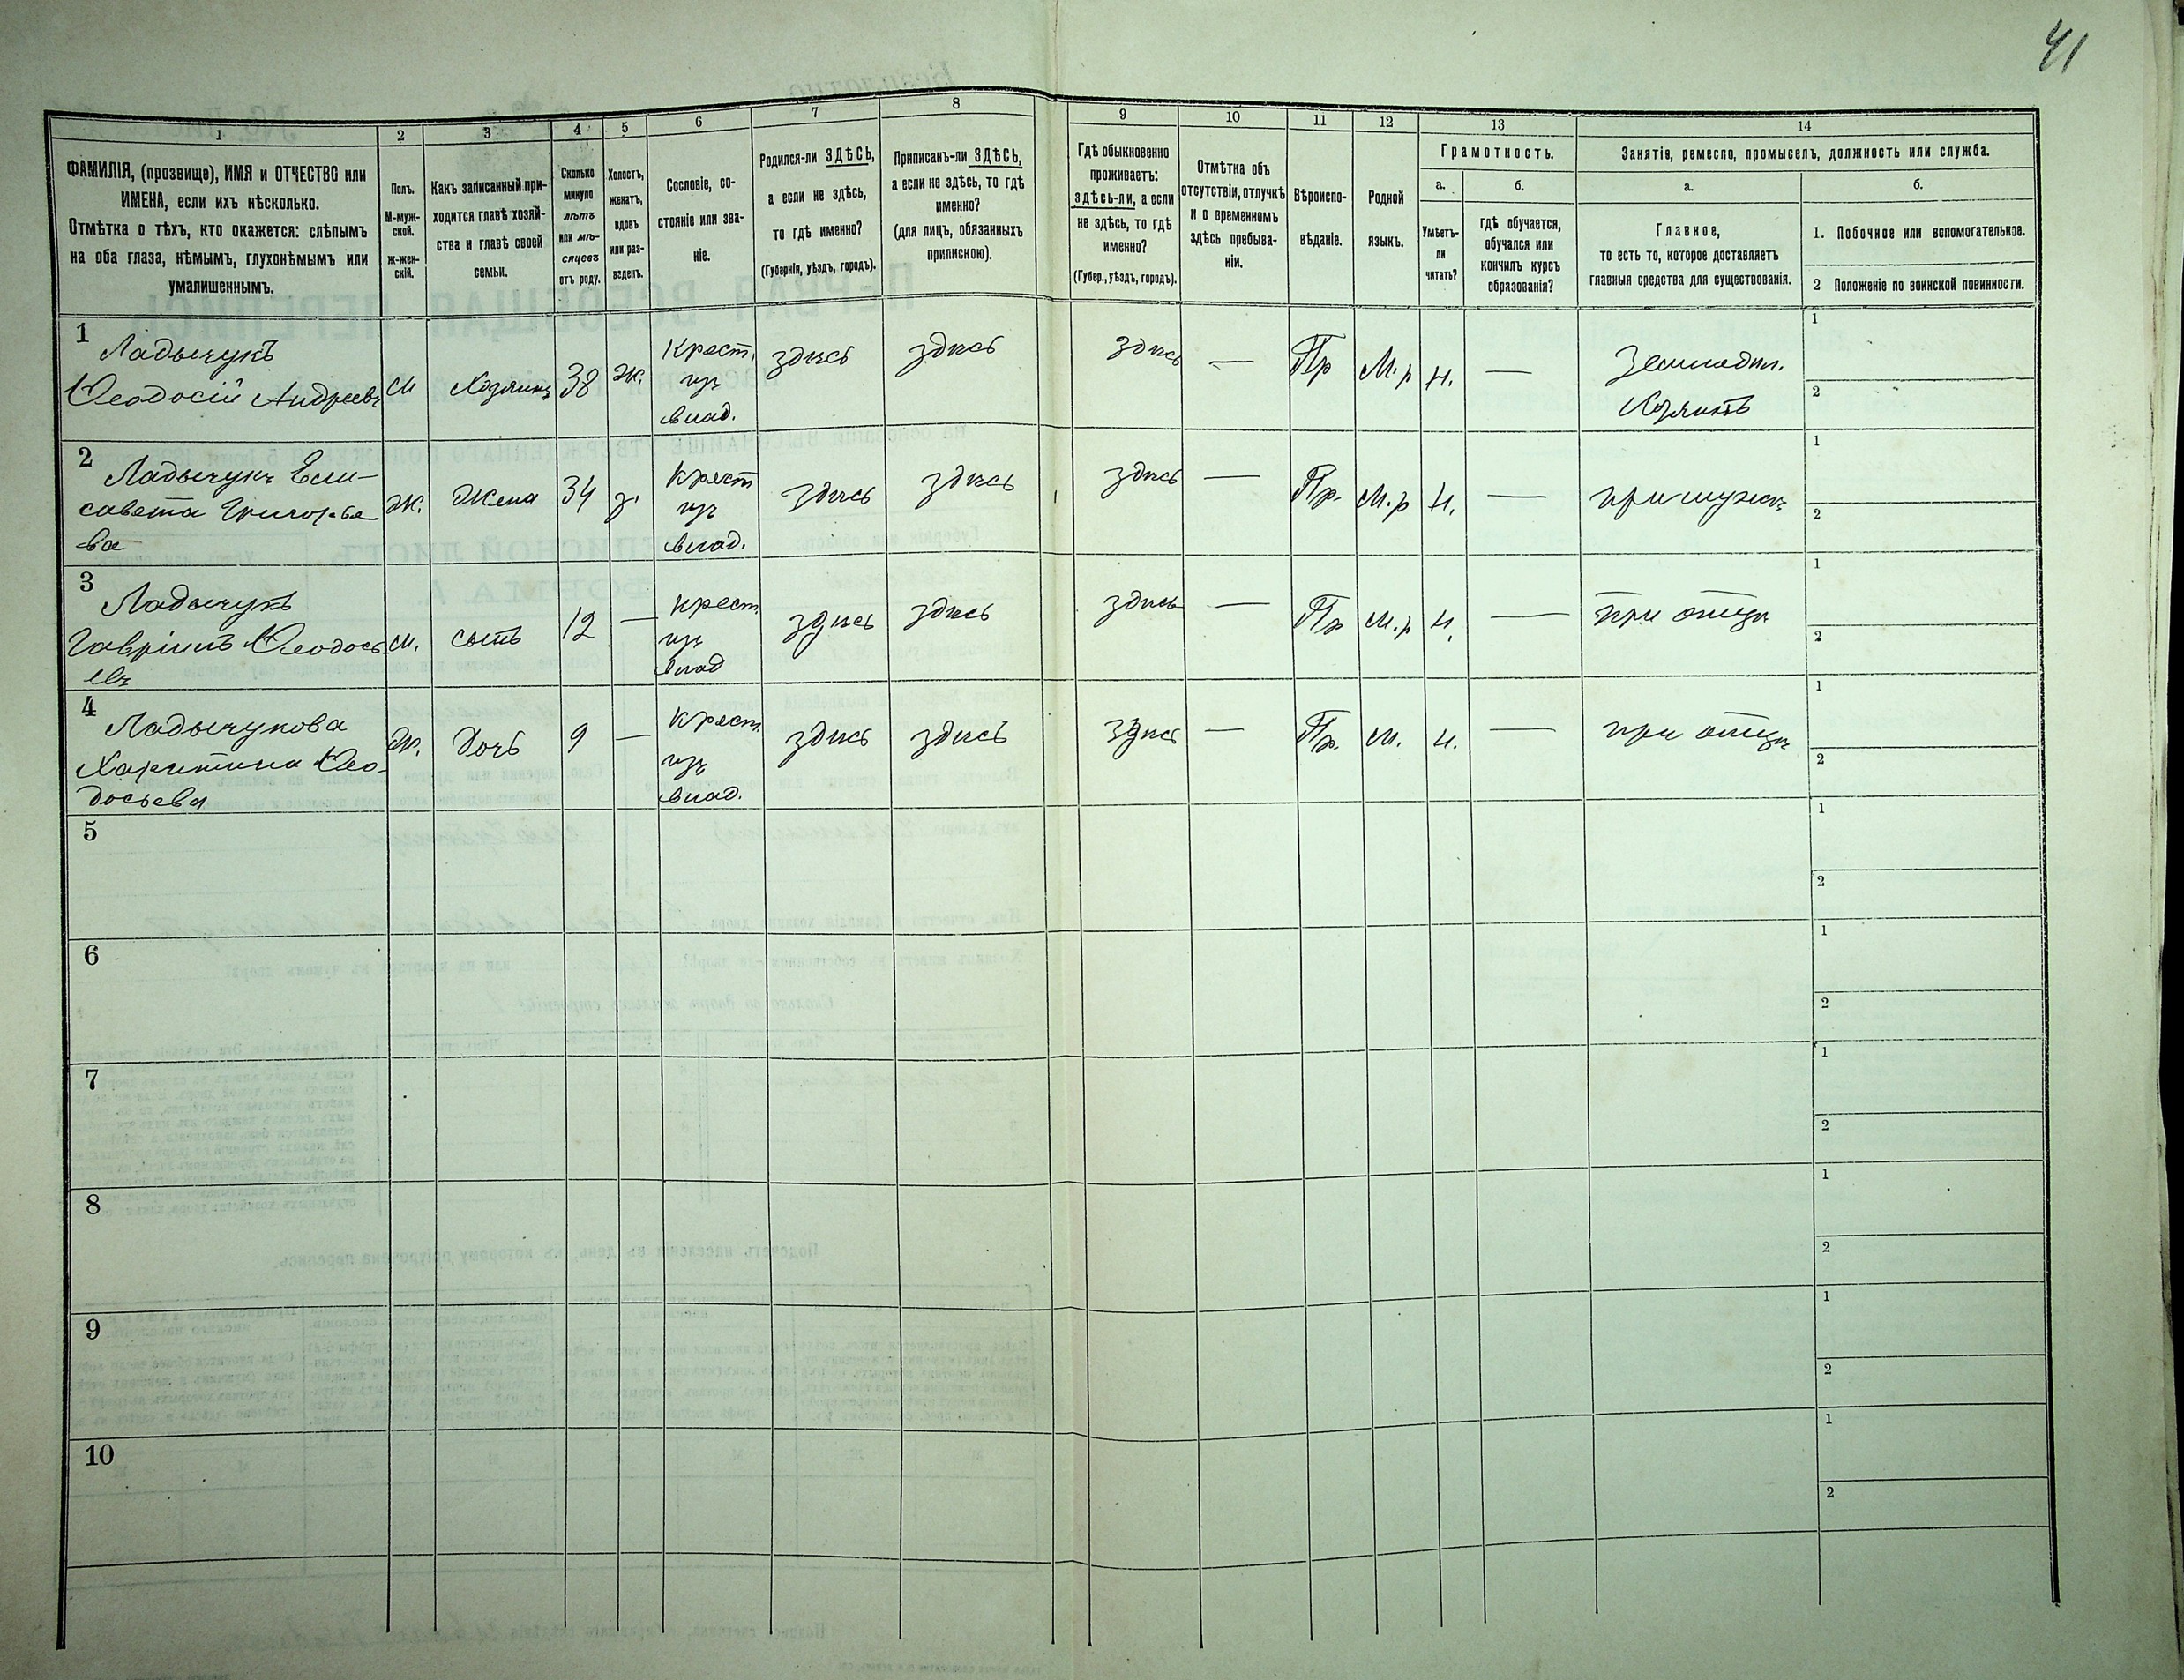 41
1
2
3
4
5
6
7
8
9
10
11
12
13
14
ФАМИЛІЯ, (прозвище), ИМЯ и ОТЧЕСТВО или
ИМЕНА, если ихъ нѣсколько.
Отмѣтка о тѣхъ, кто окажется: слѣпымъ
на оба глаза, нѣмымъ, глухонѣмымъ или
умалишеннымъ.
Полъ.
М-муж-
ской.
ж-жен-
скій.
Какъ записанный при-
ходится главѣ хозяй-
ства и главѣ своей
семьи.
Сколько
минуло
лѣтъ
или мѣ-
сяцевъ
отъ роду.
Холостъ,
женатъ,
вдовъ
или раз-
веденъ.
Сословіе, со-
стояніе или зва-
ніе.
Родился-ли ЗДѢСЬ,
а если не здѣсь,
то гдѣ именно?
(Губернія, уѣздъ, городъ).
Приписанъ-ли ЗДѢСЬ,
а если не здѣсь, то гдѣ
именно?
(для лицъ, обязанныхъ
припискою).
Гдѣ обыкновенно
проживаетъ:
здѣсь-ли, а если
не здѣсь, то гдѣ
именно?
(Губер., уѣздъ, городъ).
Отмѣтка объ
отсутствіи, отлучкѣ
и о временномъ
здѣсь пребыва-
ніи.
Вѣроиспо-
вѣданіе.
Родной
языкъ.
Грамотность.
а.
б.
Умѣетъ-
ли
читать?
гдѣ обучается,
обучался или
кончилъ курсъ
образованія?
Занятіе, ремесло, промыселъ, должность или служба.
а.
б.
Главное,
то есть то, которое доставляетъ
главныя средства для существованія.
1. Побочное или вспомогательное.
2 Положеніе по воинской повинности.
1
Ладычукъ
Ѳеодосій Андреевъ
м
Хозяинъ
38
ж.
Крест.
изъ
влад.
здѣсь
здѣсь
здѣсь
—
Пр
М.р
н.
—
Земледѣл.
Хозяинъ
1
2
2
Ладычукъ Ели-
савета Григорье
-ва
ж.
Жена
34
з.
Крест
изъ
влад.
здѣсь
здѣсь
здѣсь
—
Пр.
М.р
н.
—
при мужѣ
1
2
3
Ладычукъ
Гавріилъ Ѳеодось
евъ
м.
сынъ
12
—
Крест.
изъ
влад
здѣсь
здѣсь
здѣсь
—
Пр
М.р
н.
—
при отцѣ
1
2
4
Ладычукова
Харитина Ѳео-
досьева
ж.
Дочь
9
—
Крест.
изъ
влад.
здѣсь
здѣсь
здѣсь
—
Пр.
М.
н.
—
при отцѣ
1
2
5
1
2
6
1
2
7
1
2
8
1
2
9
1
2
10
1
2